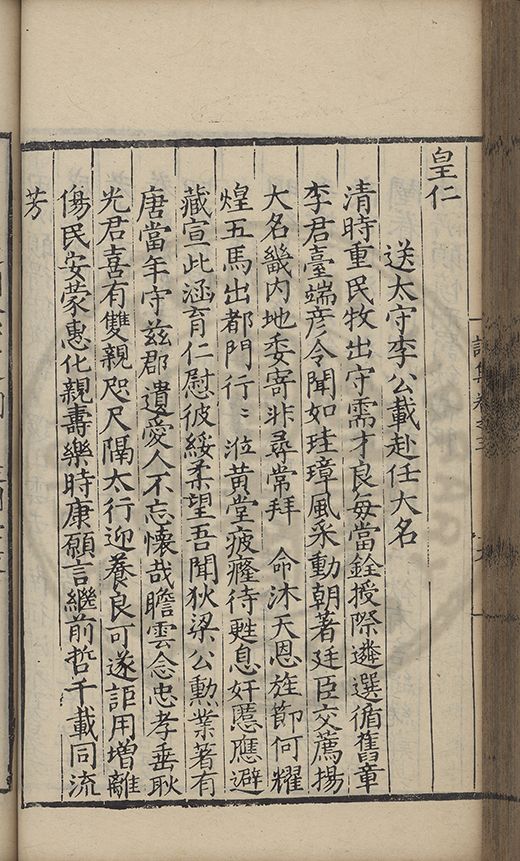 皇仁
送太守李公載赴任大名
清時重民牧出守需才良每當銓授際遴選循舊章
李君臺端彦令聞如珪璋風采動朝著廷臣交薦揚
大名畿内地委寄非尋常拜 命沐天恩旌節何耀
煌五馬出都門行〻涖黄堂疲癃待甦息奸慝應避
藏宣此涵育仁慰彼綏柔望吾聞狄梁公勲業著有
唐當年守兹郡遺愛人不忘懷哉瞻雲念忠孝垂耿
光君喜有雙親咫尺隔太行迎養良可遂詎用增離
傷民安蒙惠化親壽樂時康願言繼前哲千載同流
芳
詩集卷之三